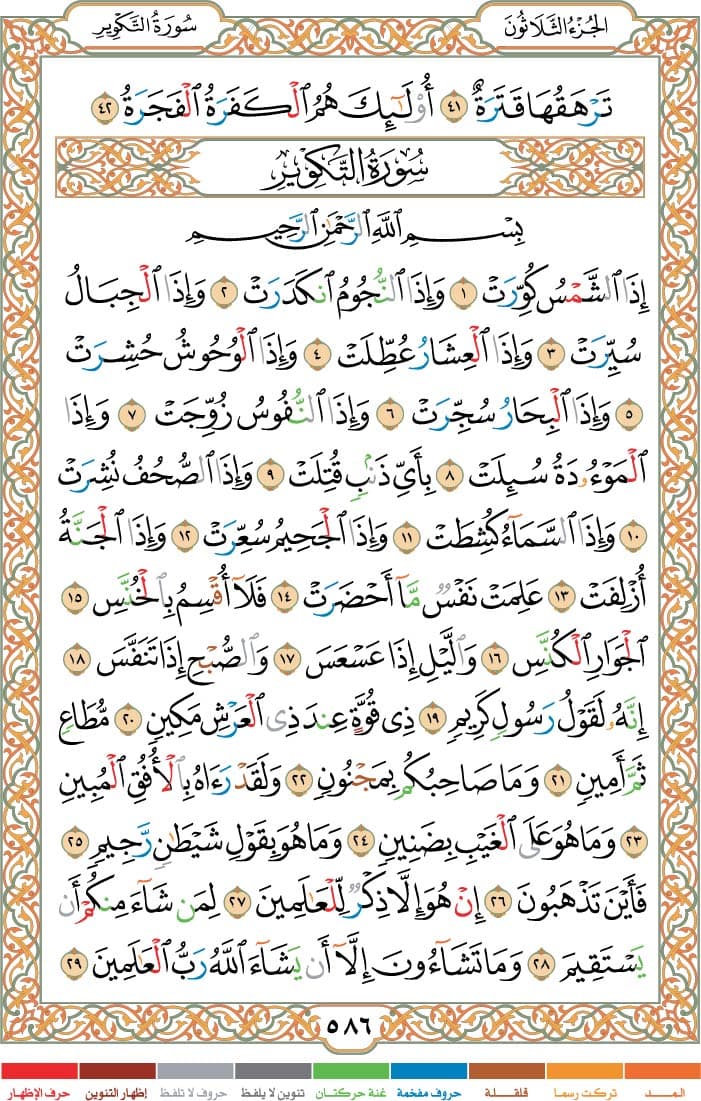 سُورَةُ التَّكْوِيرِ
الجُزْءُ الثَّلَاثُونَ
تَرْهَقُهَا قَتَرَةٌ ٤١ أُوْلَٰٓئِكَ هُمُ ٱلْكَفَرَةُ ٱلْفَجَرَةُ ٤٢
سُورَةُ التَّكْوِيرِ
بِسْمِ ٱللَّهِ ٱلرَّحْمَٰنِ ٱلرَّحِيمِ
إِذَا ٱلشَّمْسُ كُوِّرَتْ ١ وَإِذَا ٱلنُّجُومُ ٱنكَدَرَتْ ٢ وَإِذَا ٱلْجِبَالُ
سُيِّرَتْ ٣ وَإِذَا ٱلْعِشَارُ عُطِّلَتْ ٤ وَإِذَا ٱلْوُحُوشُ حُشِرَتْ
٥ وَإِذَا ٱلْبِحَارُ سُجِّرَتْ ٦ وَإِذَا ٱلنُّفُوسُ زُوِّجَتْ ٧ وَإِذَا
ٱلْمَوْءُۥدَةُ سُئِلَتْ ٨ بِأَيِّ ذَنۢبٍ قُتِلَتْ ٩ وَإِذَا ٱلصُّحُفُ نُشِرَتْ
١٠ وَإِذَا ٱلسَّمَآءُ كُشِطَتْ ١١ وَإِذَا ٱلْجَحِيمُ سُعِّرَتْ ١٢ وَإِذَا ٱلْجَنَّةُ
أُزْلِفَتْ ١٣ عَلِمَتْ نَفْسٌ مَّآ أَحْضَرَتْ ١٤ فَلَآ أُقْسِمُ بِٱلْخُنَّسِ ١٥
ٱلْجَوَارِ ٱلْكُنَّسِ ١٦ وَٱلَّيْلِ إِذَا عَسْعَسَ ١٧ وَٱلصُّبْحِ إِذَا تَنَفَّسَ ١٨
إِنَّهُۥ لَقَوْلُ رَسُولٍ كَرِيمٍ ١٩ ذِى قُوَّةٍ عِندَ ذِى ٱلْعَرْشِ مَكِينٍ ٢٠ مُّطَاعٍ
ثَمَّ أَمِينٍ ٢١ وَمَا صَاحِبُكُم بِمَجْنُونٍ ٢٢ وَلَقَدْ رَءَاهُ بِٱلْأُفُقِ ٱلْمُبِينِ
٢٣ وَمَا هُوَ عَلَى ٱلْغَيْبِ بِضَنِينٍ ٢٤ وَمَا هُوَ بِقَوْلِ شَيْطَٰنٍ رَّجِيمٍ ٢٥
فَأَيْنَ تَذْهَبُونَ ٢٦ إِنْ هُوَ إِلَّا ذِكْرٌ لِّلْعَٰلَمِينَ ٢٧ لِمَن شَآءَ مِنكُمْ أَن
يَسْتَقِيمَ ٢٨ وَمَا تَشَآءُونَ إِلَّآ أَن يَشَآءَ ٱللَّهُ رَبُّ ٱلْعَٰلَمِينَ ٢٩
٥٨٦
المــــد تركت رسما قلقـــلة حروف مفخمة غنة حركتان تنوين لا يلفظ حروف لا تلفظ إظهار التنوين حرف الإظهار